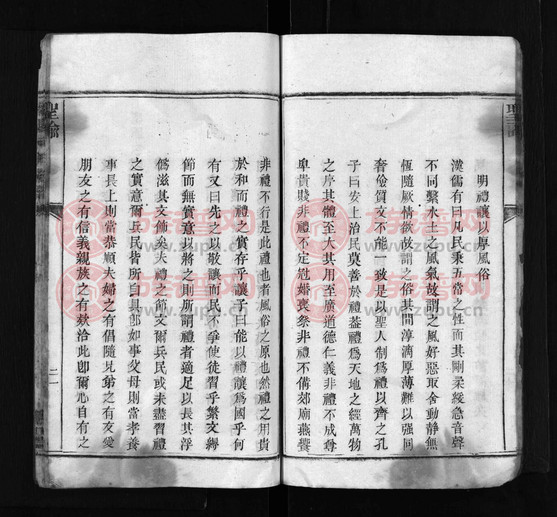 明禮讓以厚風俗
漢儒有曰凡民秉五常之性而其剛柔緩急音聲
不同繫水土之風氣故謂之風好惡取舍動靜無
恆隨厥情欲故謂之俗其間淳漓厚薄難以强同
奢儉質文不能一致是以聖人制爲禮以齊之孔
子曰安上治民莫善於禮蓋禮爲天地之經萬物
之序其體至大其用至廣道德仁義非禮不成尊
卑貴賤非禮不定冠婚喪祭非禮不備郊廟燕饗
非禮不行是此禮也者風俗之原也然禮之用貴
於和而禮之實存乎讓子曰能以禮讓爲國乎何
有又曰先之以敬讓而民不爭使徒習乎繁文縟
節而無實意以將之則所謂禮者適足以長其浮
僞滋其文飾矣夫禮之節文爾兵民或未盡習禮
之實意爾兵民皆所自具卽如事父母則當孝養
事長上則當恭順夫婦之有倡隨兄弟之有友愛
朋友之有信義親族之有欵洽此卽爾心自有之
聖諭
二
族譜网
www.zupu.cn